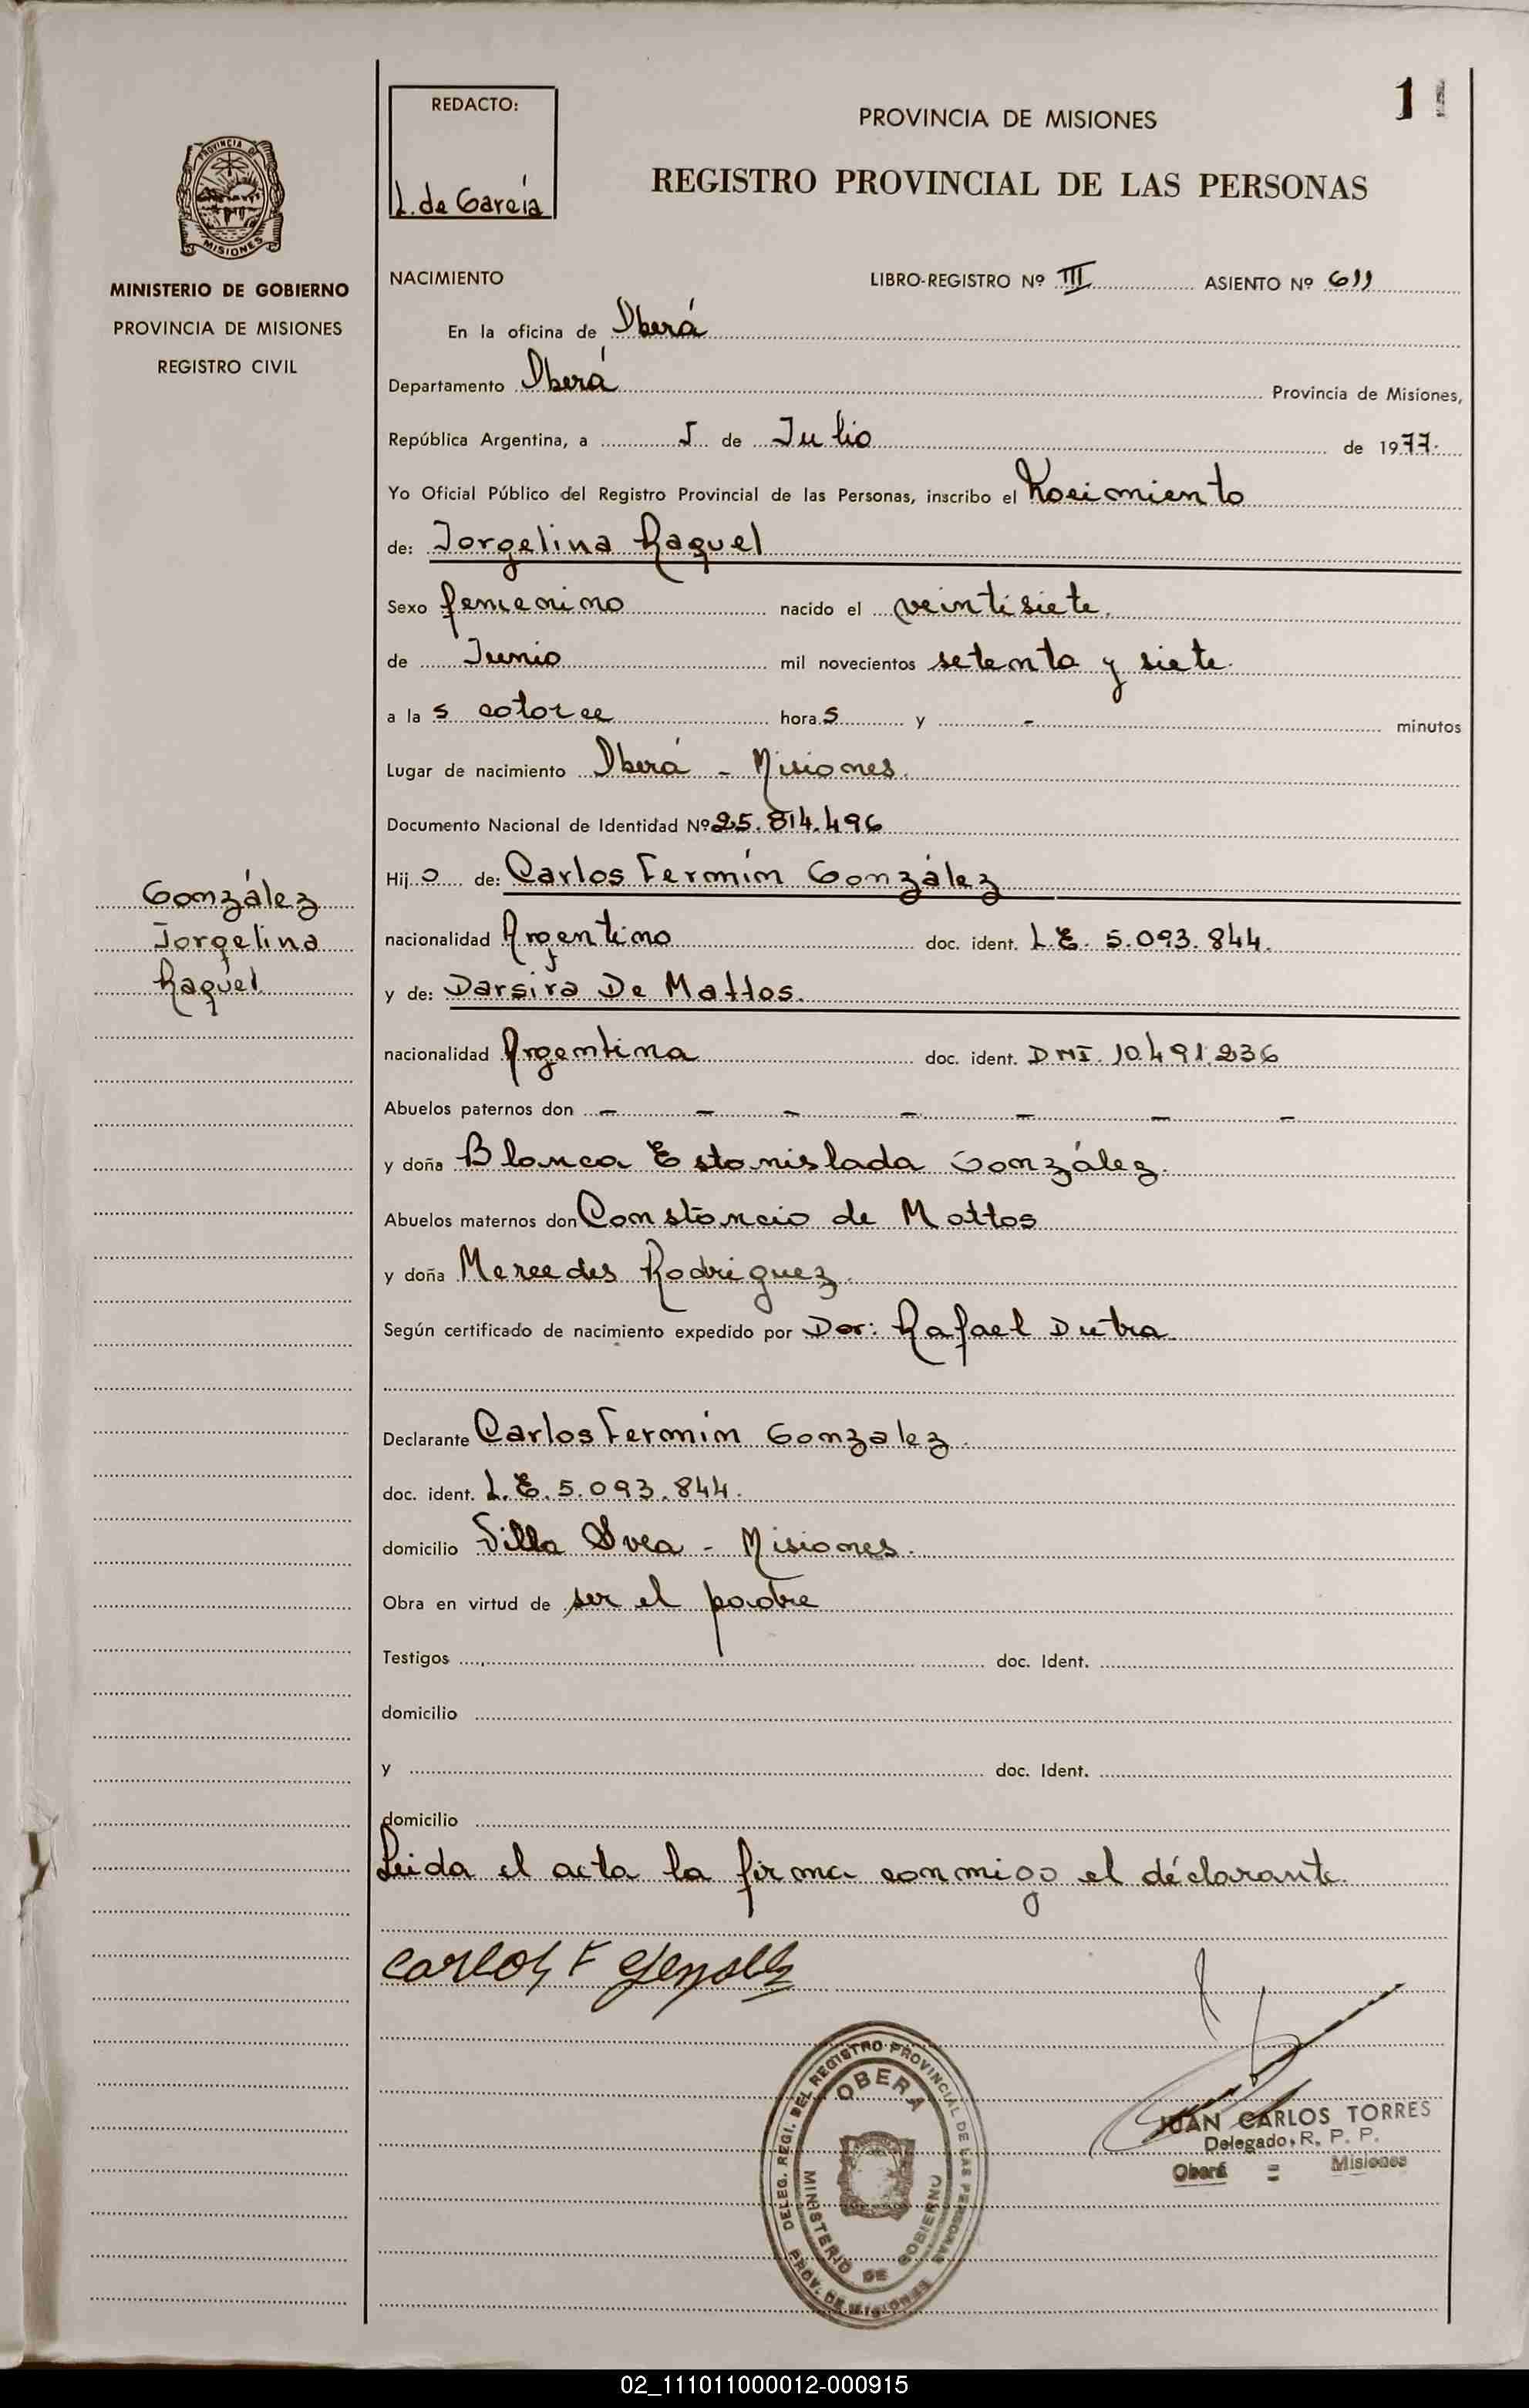 1
REDACTO:
L. de García
PROVINCIA DE MISIONES
REGISTRO PROVINCIAL DE LAS PERSONAS
PROVINCIA DE
MISIONES
MINISTERIO DE GOBIERNO
PROVINCIA DE MISIONES
REGISTRO CIVIL
NACIMIENTO LIBRO-REGISTRO Nº III ASIENTO Nº 611
En la oficina de Oberá
Departamento Oberá Provincia de Misiones,
República Argentina, a 5 de Julio de 1977.
Yo Oficial Público del Registro Provincial de las Personas, inscribo el Nacimiento
de: Jorgelina Raquel
Sexo femenino nacido el veintisiete
de Junio mil novecientos setenta y siete.
a la s catorce hora s y - minutos
Lugar de nacimiento Oberá - Misiones.
Documento Nacional de Identidad Nº 25.814.496
Hij a de: Carlos Fermín González
nacionalidad Argentino doc. ident. L.E. 5.093.844.
y de: Darsira De Mattos.
nacionalidad Argentina doc. ident. DNI. 10.491.236
Abuelos paternos don - - - - - - -
y doña Blanca Estanislada González.
Abuelos maternos don Constancio de Mattos
y doña Mercedes Rodriguez.
Según certificado de nacimiento expedido por Dor: Rafael Dutra
Declarante Carlos Fermín Gonzalez.
doc. ident. L.E. 5.093.844.
domicilio Villa Svea - Misiones.
Obra en virtud de ser el padre
Testigos doc. Ident.
domicilio
y doc. Ident.
domicilio
Leida el acta la firma conmigo el déclarante.
González
Jorgelina
Raquel
Carlos F
DELEG. REGI. DEL REGISTRO PROVINCIAL DE LAS PERSONAS
OBERA
MINISTERIO DE GOBIERNO
PROV. DE MISIONES
JUAN CARLOS TORRES
Delegado R. P. P.
Oberá = Misiones
02_111011000012-000915